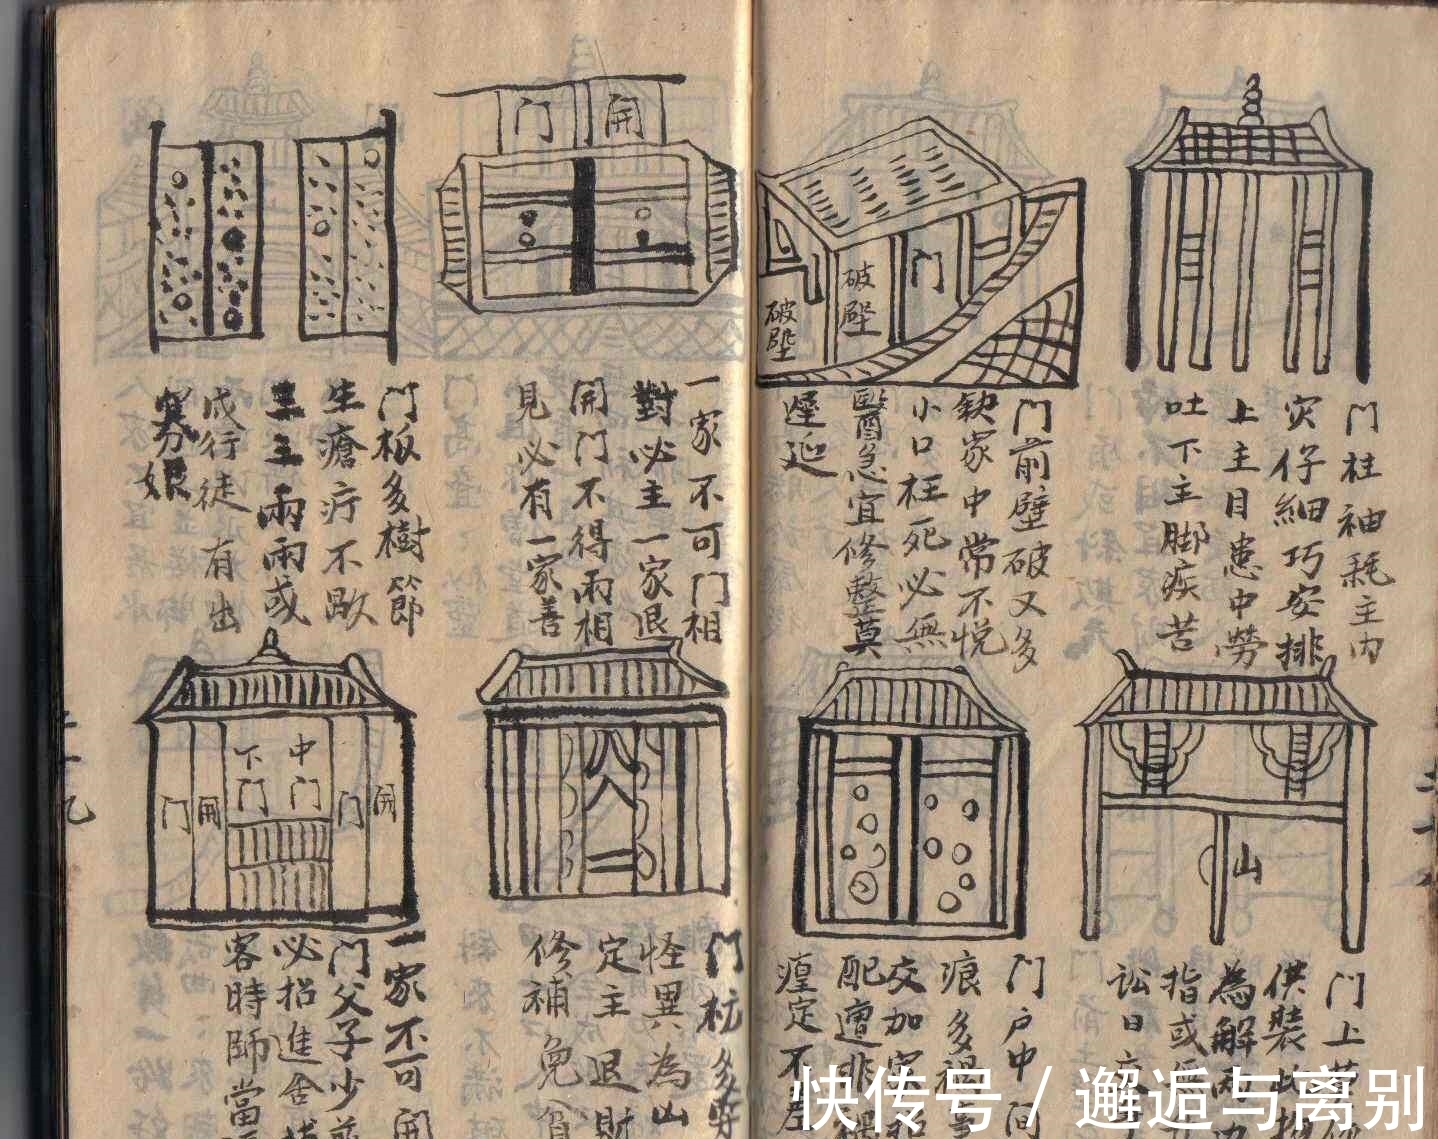 门柱袖耗主内
灾仔細巧安排
上主目患中勞
吐下主脚疾苦
门
破壁
破壁
门前壁破又多
缺家中常不悦
小口枉死必無
醫急宜修整莫
遲延
门
開
一家不可门相
對必主一家退
開门不得兩相
見必有一家善
门板多樹節
生瘡疔不歇
三主兩兩或
戍行徒有出
山
门上
供裝此
為解
指或
訟日
门户中间
痕多禍
交加家
配遭非
瘟定不
门杭多
怪異為山
定主退財
修補免貧
中门
下门
開
门
開
门
一家不可開
门父子少
必招進舍
客時師當
二十九
快传号/邂逅与离别